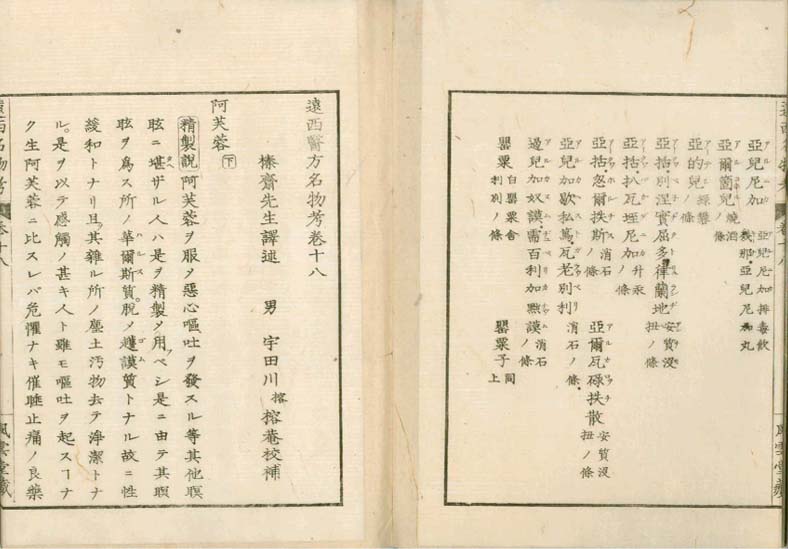 亞兒尼加 亞兒尼加排毒飲
亞兒尼加丸
亞爾箇兒 燒酒ノ條
亞的兒 ノ條
亞括別涅實屈多律蘭地 安質没扭ノ條
亞括扒瓦垤尼加 升汞ノ條
亞括忽爾扶斯 消石ノ條 亞爾瓦碌扶散 安質没扭ノ條
亞兒加歇私篤瓦老別利 消石ノ條
過兒加奴謨需百利加㸃謨 消石ノ條
罌粟 白罌粟舎利別ノ條 罌粟子 同上
遠西醫方名物考卷十八
榛齋先生譯述 男 宇田川榕 榕菴校補
阿芙蓉 下
精製說 阿芙蓉ヲ服タ惡心嘔吐ヲ發スル等其他瞑
眩ニ堪ザル人ハ是ヲ精製タ用フベシ是ニ由テ其瞑
眩ヲ爲ス所ノ華爾斯質脫ノ護謨質トナル故ニ性
緩和トナリ且其雜ル所ノ塵土汚物去テ淨潔トナ
ル。是ヲ以テ感觸ノ甚キ人ト雖モ嘔吐ヲ起スヿナ
ク生阿芙蓉ニ比スレバ危懼ナキ催睡止痛ノ良藥
名物考 卷十八
風雲堂藏